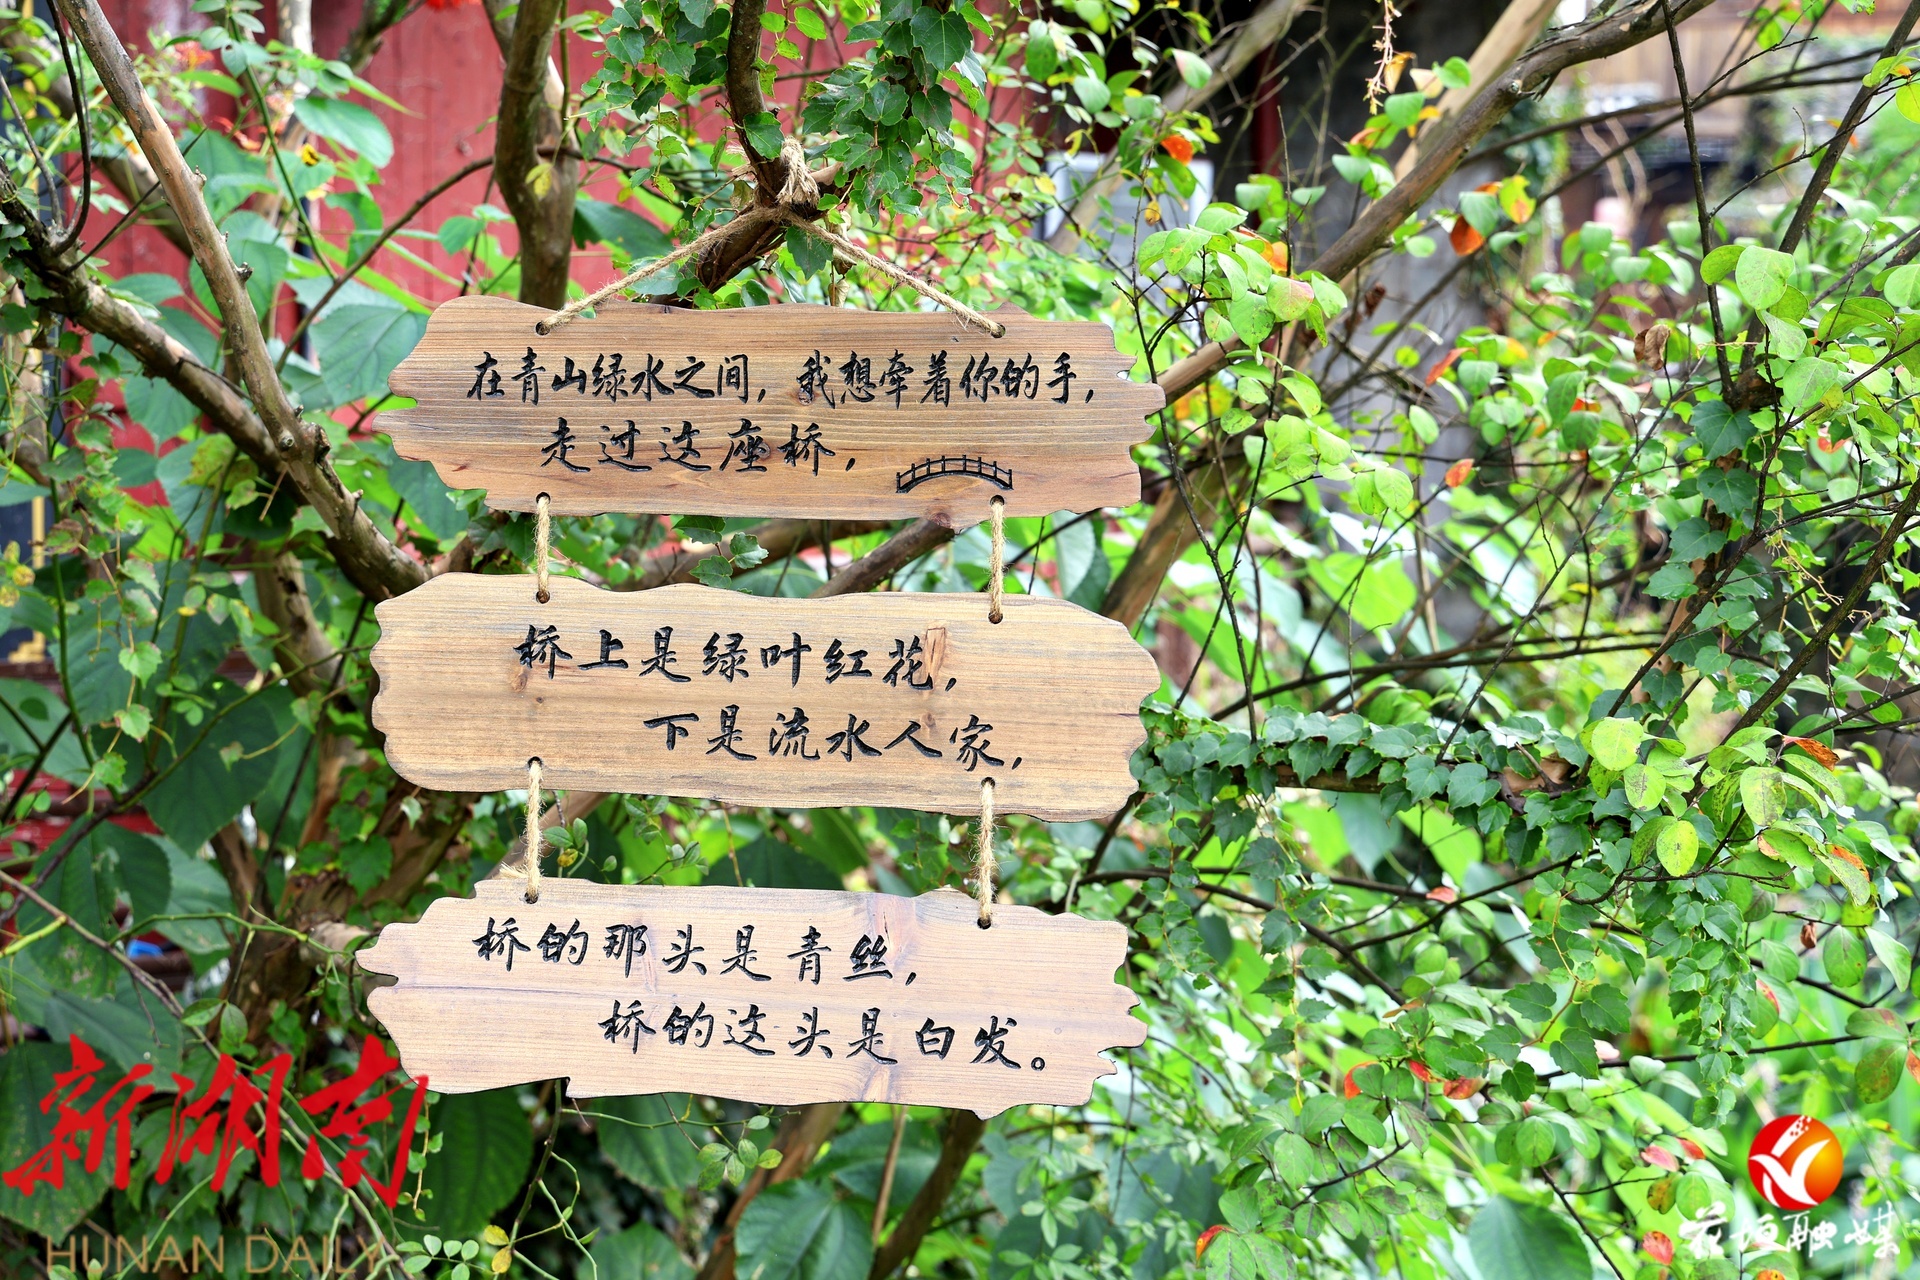 在青山绿水之间，我想牵着你的手，
走过这座桥，
桥上是绿叶红花，
下是流水人家，
桥的那头是青丝，
桥的这头是白发。
新湖南
HUNAN DAILY
花垣融媒